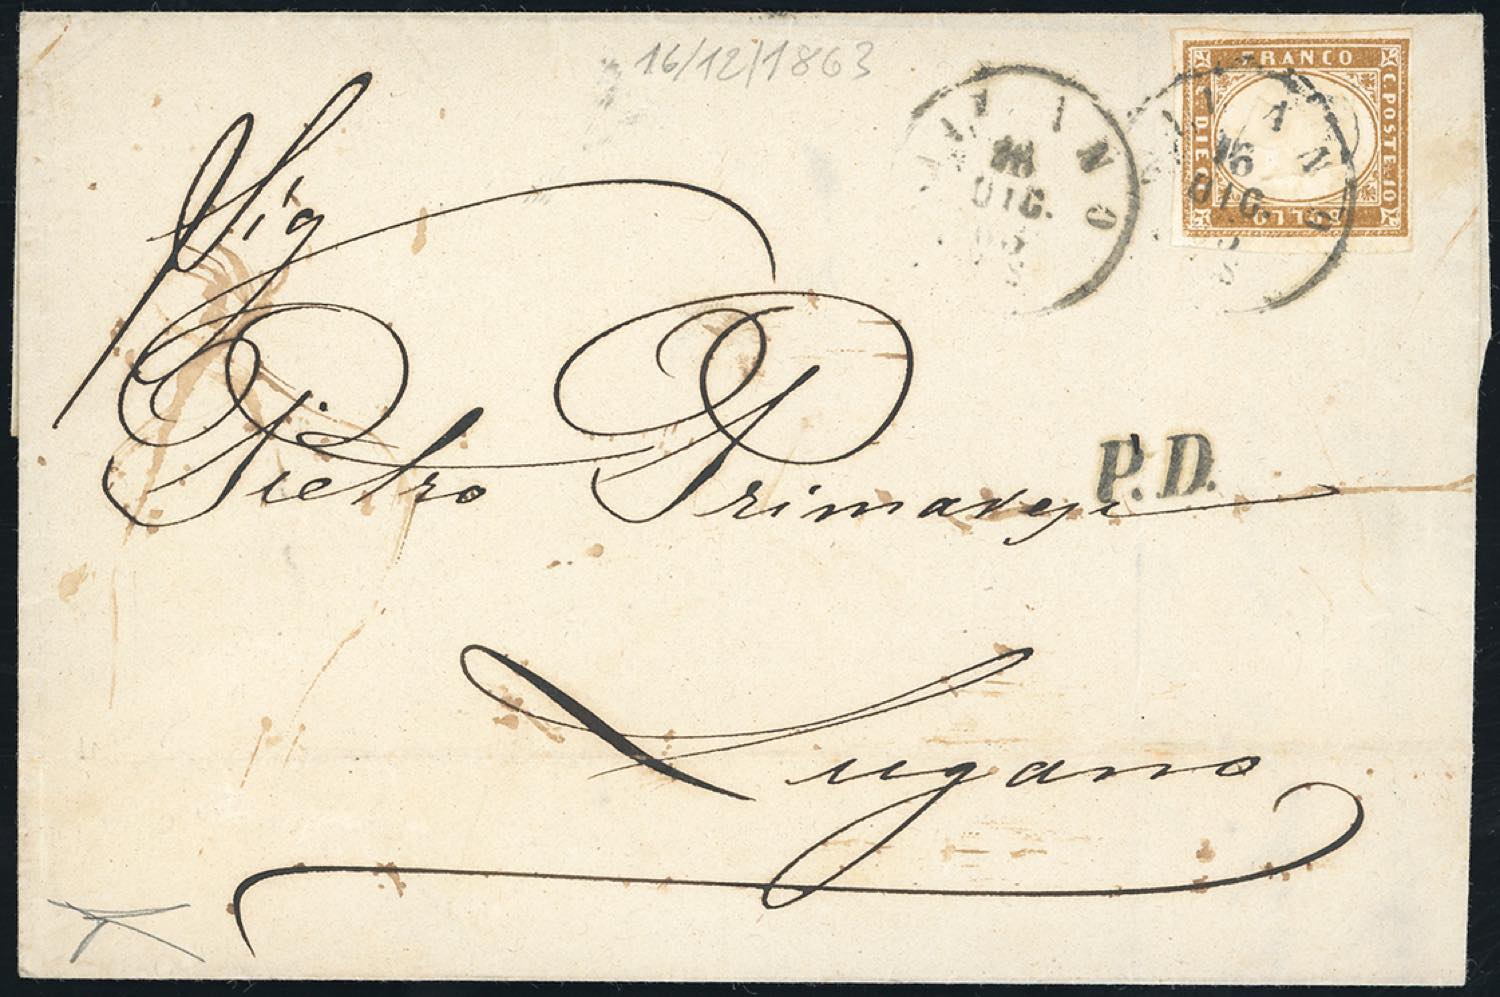 16/12/1863
FRANCO
C. POSTE 10
MILANO
16
DIC.
63
MILANO
16
DIC.
Sig
Pietro Primavesi
P.D.
Lugano